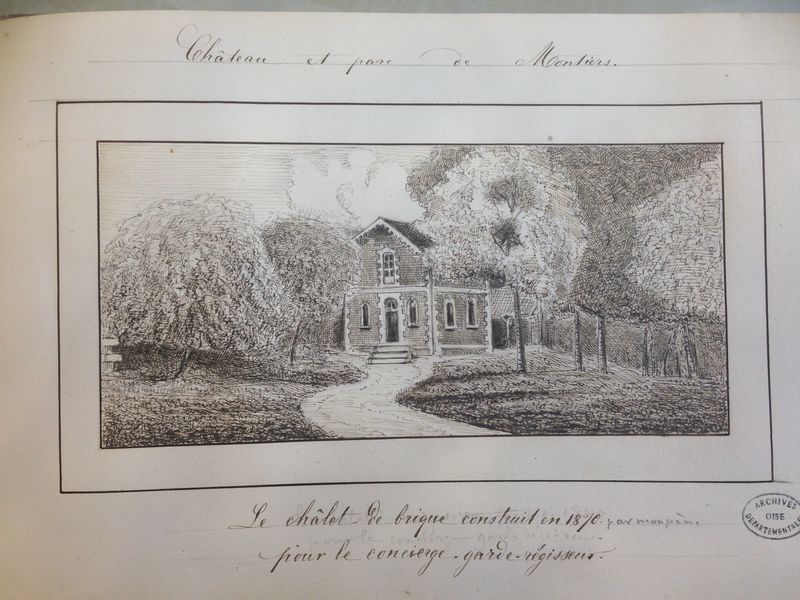 Château et parc de Montiers.
Le châlet de brique construit en 1870. par mon père
pour le concierge-garde-régisseur.
ARCHIVES
OISE
DEPARTEMENTALES